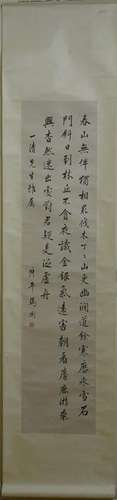 春山無伴獨相求伐木丁丁山更幽澗道餘寒歷冰雪石
門斜日到林丘不貪夜識金銀氣遠害朝看麋鹿游乘
興杳然迷出處對君疑是泛虛舟
一清先生雅屬